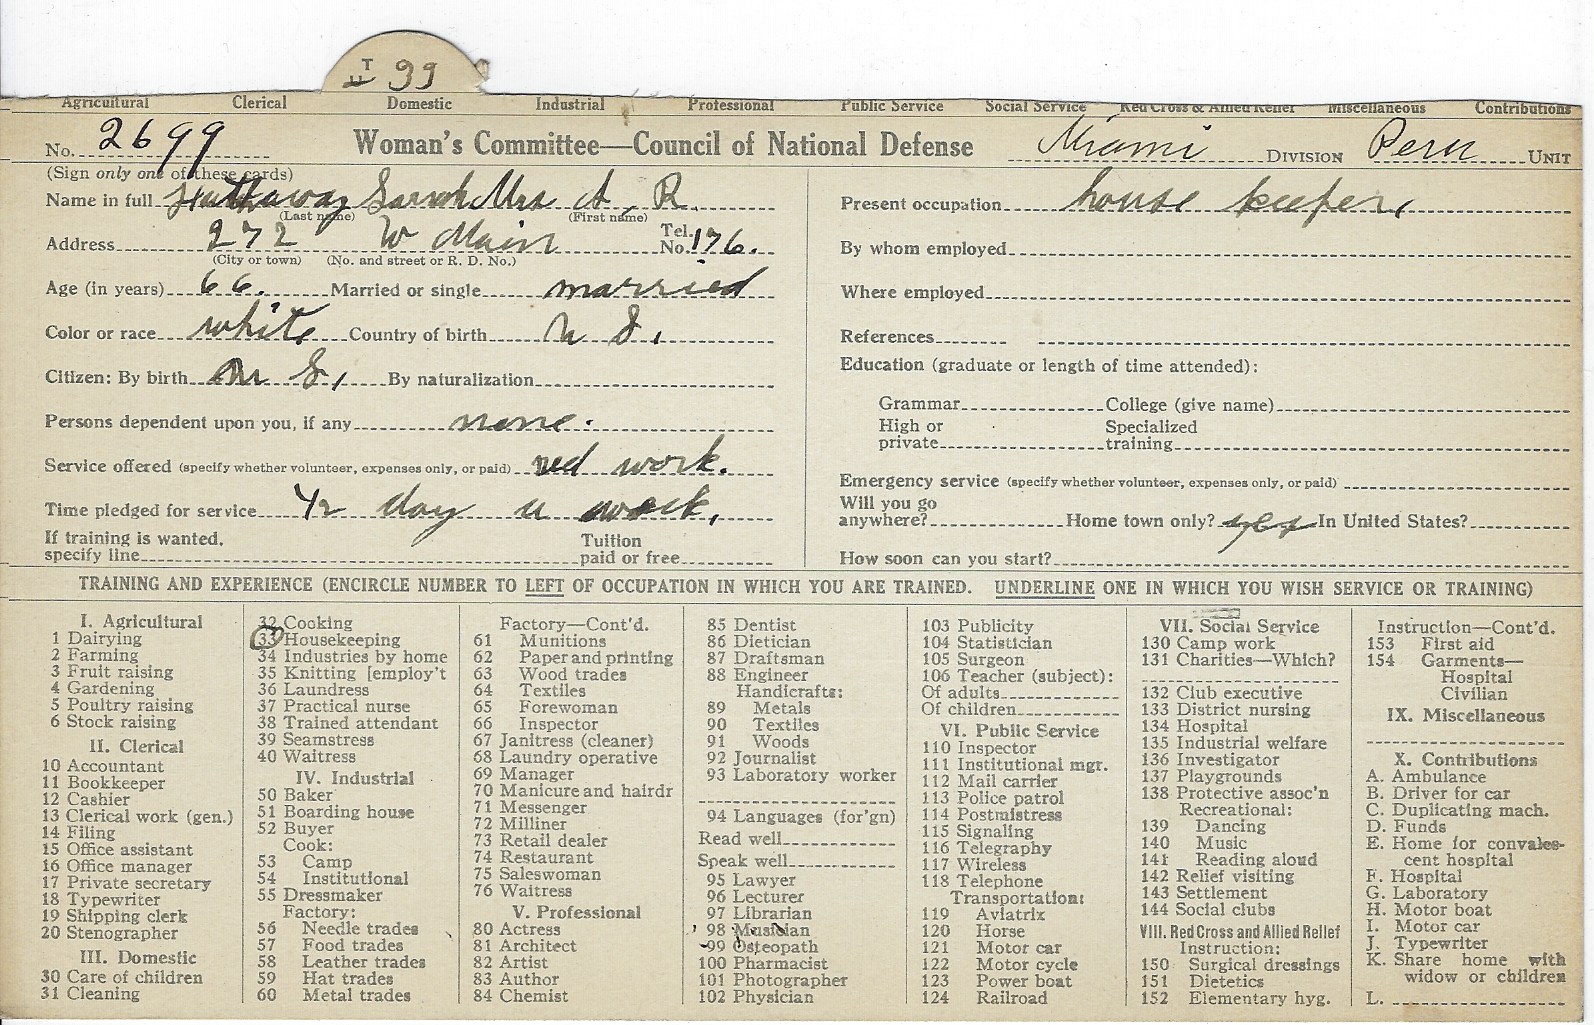 99
Agricultural Clerical Domestic Industrial Professional Public Service Social Service Red Cross & Allied Relief Miscellaneous Contributions
No. 2699 Woman's Committee—Council of National Defense Miami DIVISION Peru UNIT
(Sign only one of these cards)
Name in full Hathaway Sarah Mrs A. R.
(Last name) (First name)
Address 272 W Main Tel. No. 176.
(City or town) (No. and street or R. D. No.)
Age (in years) 66. Married or single married
Color or race white Country of birth U S.
Citizen: By birth S, By naturalization
Persons dependent upon you, if any none.
Service offered (specify whether volunteer, expenses only, or paid) red work.
Time pledged for service 1/2 day a week,
If training is wanted, specify line Tuition paid or free
Present occupation house keeper,
By whom employed
Where employed
References
Education (graduate or length of time attended):
Grammar College (give name)
High or private Specialized training
Emergency service (specify whether volunteer, expenses only, or paid)
Will you go anywhere? Home town only? yes In United States?
How soon can you start?
TRAINING AND EXPERIENCE (ENCIRCLE NUMBER TO LEFT OF OCCUPATION IN WHICH YOU ARE TRAINED. UNDERLINE ONE IN WHICH YOU WISH SERVICE OR TRAINING)
I. Agricultural
1 Dairying
2 Farming
3 Fruit raising
4 Gardening
5 Poultry raising
6 Stock raising
II. Clerical
10 Accountant
11 Bookkeeper
12 Cashier
13 Clerical work (gen.)
14 Filing
15 Office assistant
16 Office manager
17 Private secretary
18 Typewriter
19 Shipping clerk
20 Stenographer
III. Domestic
30 Care of children
31 Cleaning
32 Cooking
33 Housekeeping
34 Industries by home
35 Knitting [employ't
36 Laundress
37 Practical nurse
38 Trained attendant
39 Seamstress
40 Waitress
IV. Industrial
50 Baker
51 Boarding house
52 Buyer
Cook:
53 Camp
54 Institutional
55 Dressmaker
Factory:
56 Needle trades
57 Food trades
58 Leather trades
59 Hat trades
60 Metal trades
Factory—Cont'd.
61 Munitions
62 Paper and printing
63 Wood trades
64 Textiles
65 Forewoman
66 Inspector
67 Janitress (cleaner)
68 Laundry operative
69 Manager
70 Manicure and hairdr
71 Messenger
72 Milliner
73 Retail dealer
74 Restaurant
75 Saleswoman
76 Waitress
V. Professional
80 Actress
81 Architect
82 Artist
83 Author
84 Chemist
85 Dentist
86 Dietician
87 Draftsman
88 Engineer
Handicrafts:
89 Metals
90 Textiles
91 Woods
92 Journalist
93 Laboratory worker
94 Languages (for'gn)
Read well
Speak well
95 Lawyer
96 Lecturer
97 Librarian
98 Musician
99 Osteopath
100 Pharmacist
101 Photographer
102 Physician
103 Publicity
104 Statistician
105 Surgeon
106 Teacher (subject):
Of adults
Of children
VI. Public Service
110 Inspector
111 Institutional mgr.
112 Mail carrier
113 Police patrol
114 Postmistress
115 Signaling
116 Telegraphy
117 Wireless
118 Telephone
Transportation:
119 Aviatrix
120 Horse
121 Motor car
122 Motor cycle
123 Power boat
124 Railroad
VII. Social Service
130 Camp work
131 Charities—Which?
132 Club executive
133 District nursing
134 Hospital
135 Industrial welfare
136 Investigator
137 Playgrounds
138 Protective assoc'n
Recreational:
139 Dancing
140 Music
141 Reading aloud
142 Relief visiting
143 Settlement
144 Social clubs
VIII. Red Cross and Allied Relief
Instruction:
150 Surgical dressings
151 Dietetics
152 Elementary hyg.
Instruction—Cont'd.
153 First aid
154 Garments—
Hospital
Civilian
IX. Miscellaneous
X. Contributions
A. Ambulance
B. Driver for car
C. Duplicating mach.
D. Funds
E. Home for convales-
cent hospital
F. Hospital
G. Laboratory
H. Motor boat
I. Motor car
J. Typewriter
K. Share home with
widow or children
L.